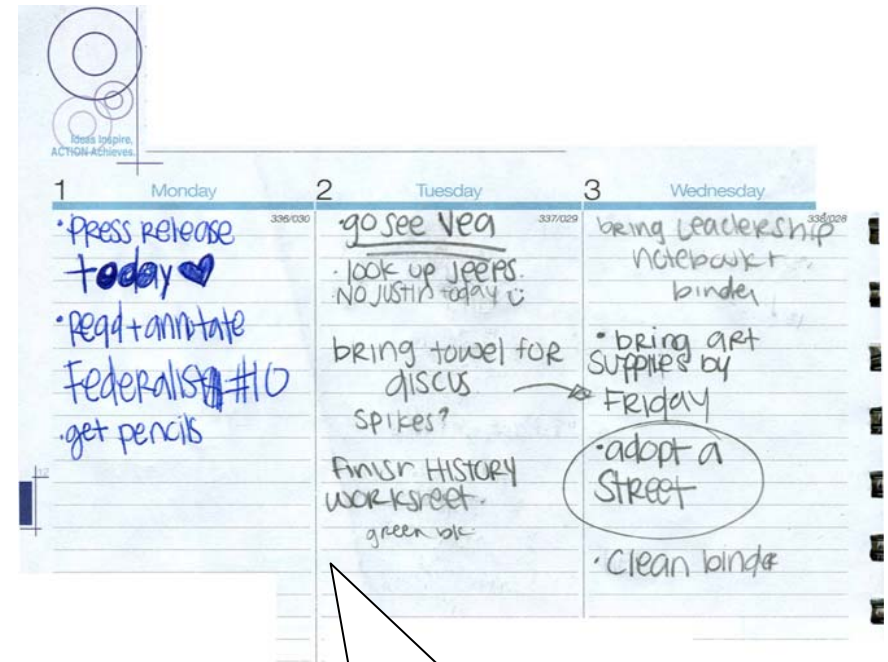 Ideas Inspire,
ACTION Achieves.
1 Monday
336/030
• Press Release
today
• Read + annotate
Federalist #10
• get pencils
12
2 Tuesday
337/029
• go see Vea
• look up Jeeps.
NO JUSTIN today
bring towel for
discus
Spikes?
Finish HISTORY
worksheet.
green
3 Wednesday
338/028
bring Leadership
notebook +
binder
• bring art
supplies by
FRIDAY
• adopt a
Street
• Clean binder